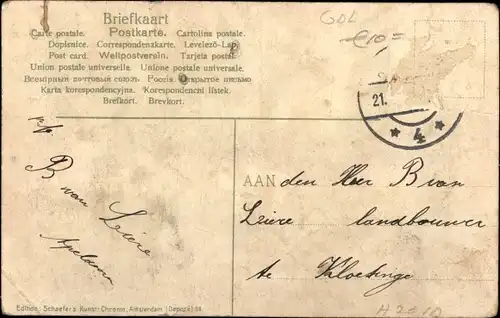 Briefkaart
Postkarte.
Carte postale. Cartolina postale.
Dopisnice. Correspondenzkarte. Levelező-Lap
Post card. Weltpostverein. Tarjeta postal.
Union postale universelle. Unione postale universale.
Всемірный почтовый союзъ. Россія. Открытое письмо
Karta korespondencyjna. Korespondenční lístek.
Brefkort. Brevkort.
GDL
€10,=
21.
* 4 *
p/f
B van
Leire
Apeldoorn
AAN den Heer B van
Leire landbouwer
te Kloetinge
Edition: Schaefer's Kunst-Chromo, Amsterdam (Deposé)